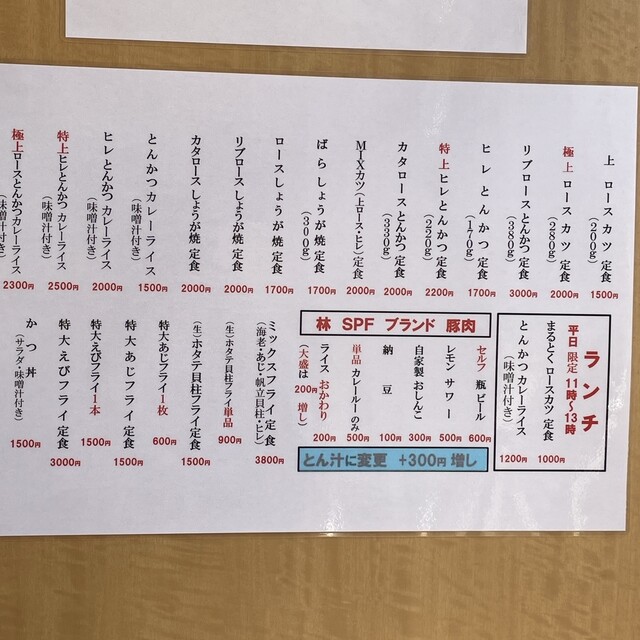 上 ロース カツ 定食
(200g)
1500円
極上 ロース カツ 定食
(280g)
2000円
リブロース とんかつ 定食
(380g)
3000円
ヒレ とんかつ 定食
(170g)
1700円
特上 ヒレ とんかつ 定食
(2520g)
2200円
カタ ロース とんかつ 定食
(330g)
2000円
MIXカツ(上ロース・ヒレ)定食
2000円
ばら しょうが 焼 定食
(300g)
1700円
ロース しょうが 焼 定食
1700円
リブロース しょうが焼 定食
2000円
カタロース しょうが焼 定食
2000円
とんかつ カレーライス
(味噌汁付き)
1500円
ヒレ とんかつ カレーライス
(味噌汁付き)
2000円
特上ヒレとんかつ カレーライス
(味噌汁付き)
2500円
極上ロースとんかつカレーライス
(味噌汁付き)
2300円
ランチ
平日 限定 11時~13時
まるとく ロースカツ 定食
1000円
とんかつ カレーライス
(味噌汁付き)
1200円
林 SPF ブランド 豚肉
セルフ 瓶 ビール
600円
レモン サワー
500円
自家製 おしんこ
300円
納豆
100円
単品 カレールーのみ
500円
ライス おかわり
200円
(大盛は 200円 増し)
とん汁に変更 +300円 増し
ミックスフライ 定食
(海老・あじ・帆立貝柱・ヒレ)
3800円
(生)ホタテ貝柱フライ単品
900円
(生)ホタテ貝柱フライ定食
1500円
特大あじフライ1枚
600円
特大 あじ フライ 定食
1500円
特大えびフライ1本
1500円
特大 えび フライ 定食
3000円
かつ丼
(サラダ・味噌汁付き)
1500円